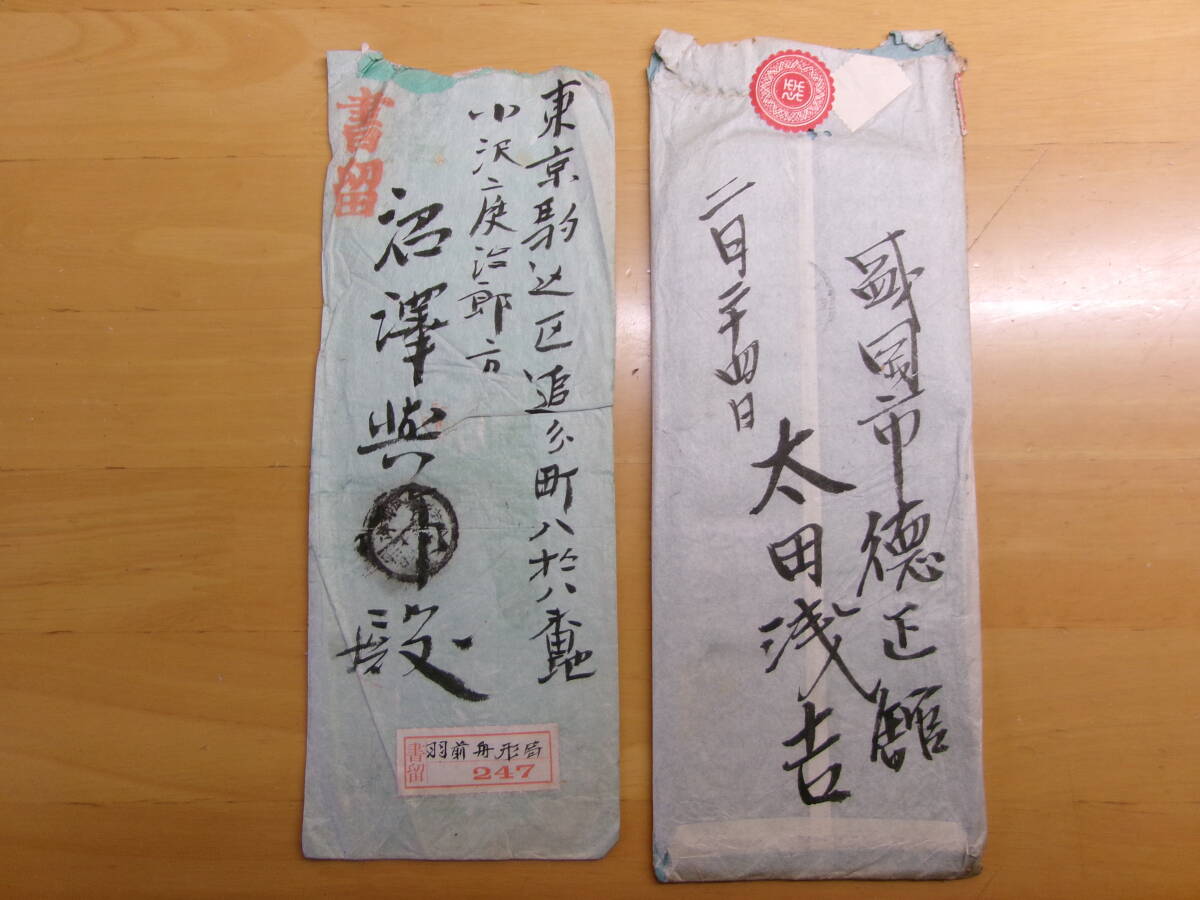 書留
東京駒込区追分町八拾八番地
小沢二庚治郎方
沼澤與市殿
書留
羽前舟形局
247
盛岡市德正館
太田浅吉
二月二十四日